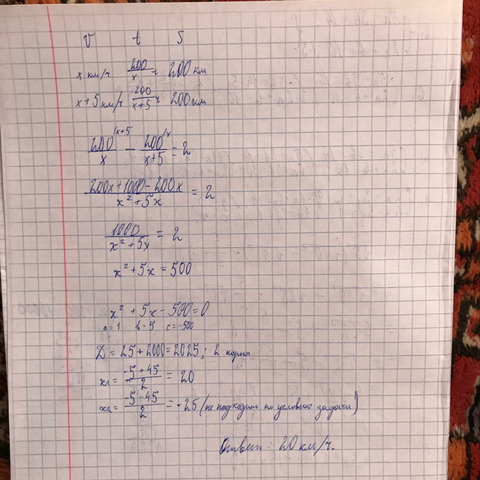 v t s
x км/ч 200/x ч 200 км
x+5 км/ч 200/x+5 ч 200 км
200^(x+5)/x - 200^(x)/x+5 = 2
200x+1000-200x/x²+5x = 2
1000/x²+5x = 2
x²+5x=500
x²+5x-500=0
a=1 b=5 c=-500
D=25+2000=2025; 2 корня
x₁= -5+45/2 = 20
x₂= -5-45/2 = -25 (не подходит по условию задачи)
Ответ: 20 км/ч.